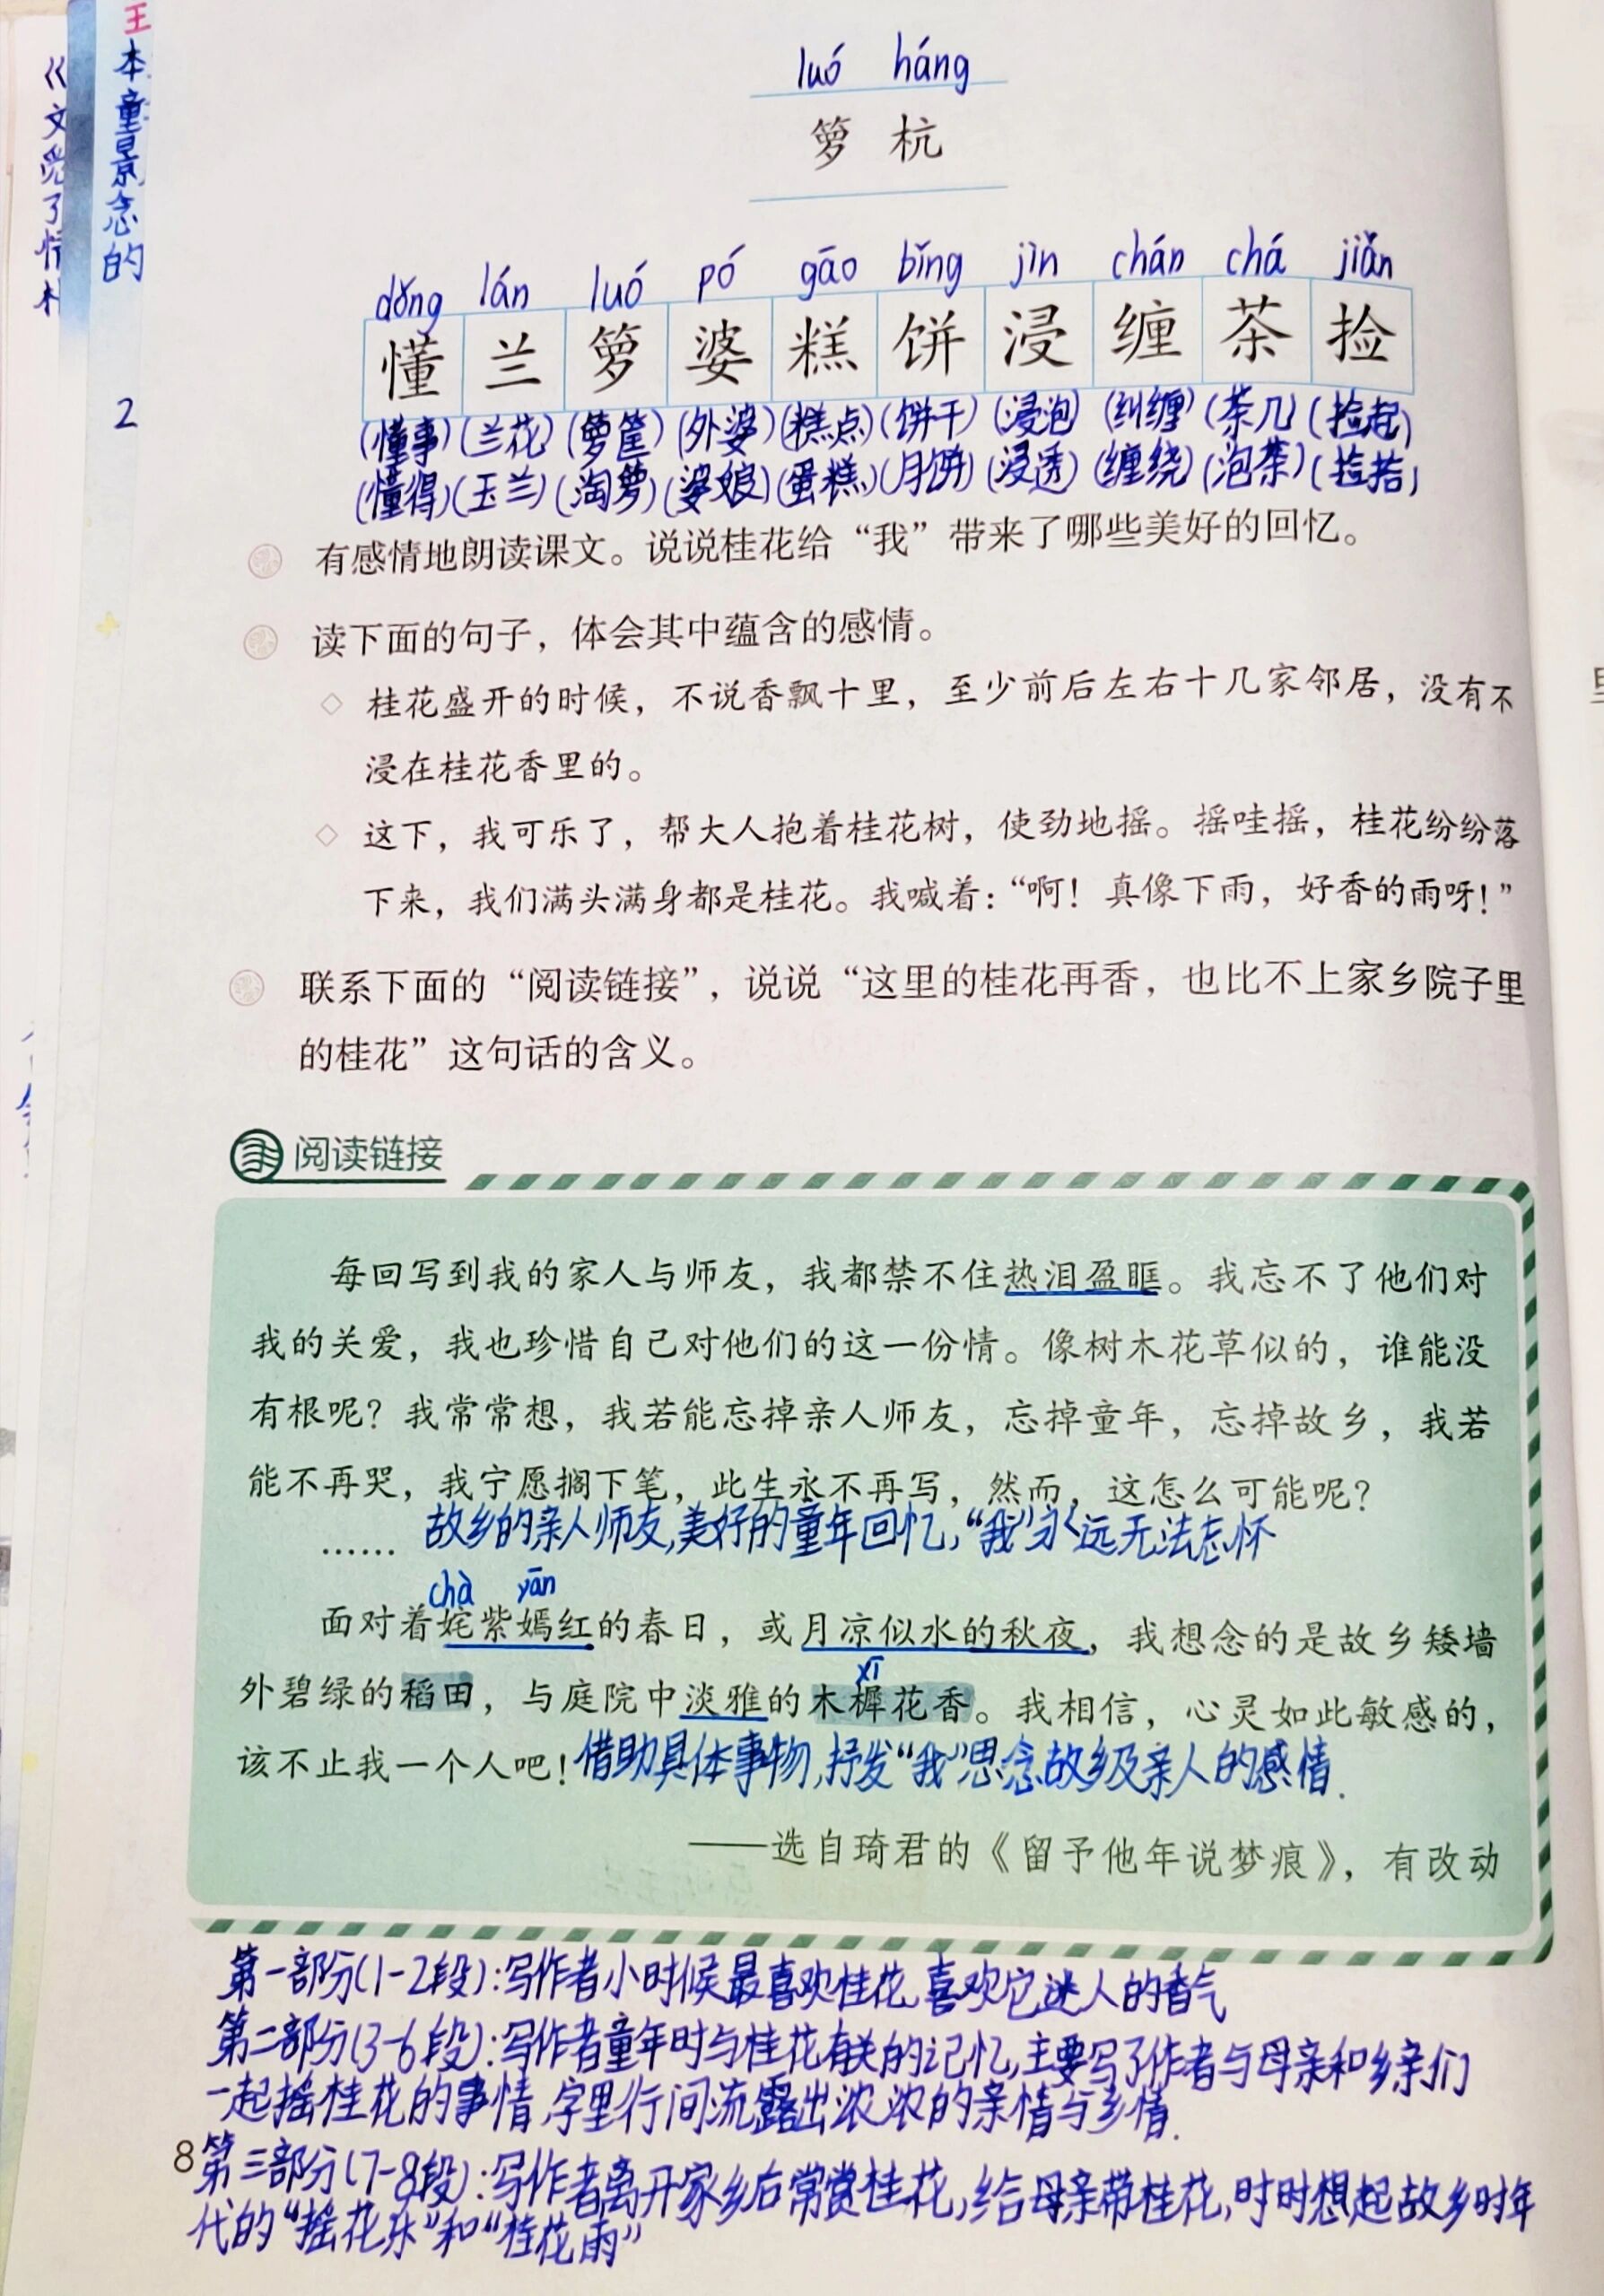 王
本
童
景
念
的
2
《
文
了
情
luó háng
箩 杭
dǒng lán luó pó gāo bǐng jìn chán chá jiǎn
懂 兰 箩 婆 糕 饼 浸 缠 茶 捡
(懂事)(兰花)(箩筐)(外婆)(糕点)(饼干)(浸泡)(纠缠)(茶几)(捡起)
(懂得)(玉兰)(淘箩)(婆娘)(蛋糕)(月饼)(浸透)(缠绕)(泡茶)(捡拾)
有感情地朗读课文。说说桂花给“我”带来了哪些美好的回忆。
读下面的句子，体会其中蕴含的感情。
◇ 桂花盛开的时候，不说香飘十里，至少前后左右十几家邻居，没有不
浸在桂花香里的。
◇ 这下，我可乐了，帮大人抱着桂花树，使劲地摇。摇哇摇，桂花纷纷落
下来，我们满头满身都是桂花。我喊着：“啊！真像下雨，好香的雨呀！”
联系下面的“阅读链接”，说说“这里的桂花再香，也比不上家乡院子里
的桂花”这句话的含义。
阅读链接
每回写到我的家人与师友，我都禁不住热泪盈眶。我忘不了他们对
我的关爱，我也珍惜自己对他们的这一份情。像树木花草似的，谁能没
有根呢？我常常想，我若能忘掉亲人师友，忘掉童年，忘掉故乡，我若
能不再哭，我宁愿搁下笔，此生永不再写，然而，这怎么可能呢？
…… 故乡的亲人师友,美好的童年回忆,“我”永远无法忘怀
chà yān
面对着姹紫嫣红的春日，或月凉似水的秋夜，我想念的是故乡矮墙
xī
外碧绿的稻田，与庭院中淡雅的木樨花香。我相信，心灵如此敏感的，
该不止我一个人吧！借助具体事物,抒发“我”思念故乡及亲人的感情.
——选自琦君的《留予他年说梦痕》，有改动
第一部分(1-2段):写作者小时候最喜欢桂花,喜欢它迷人的香气
第二部分(3-6段):写作者童年时与桂花有关的记忆,主要写了作者与母亲和乡亲们
一起摇桂花的事情,字里行间流露出浓浓的亲情与乡情.
8
第三部分(7-8段):写作者离开家乡后常赏桂花,给母亲带桂花,时时想起故乡时年
代的“摇花乐”和“桂花雨”